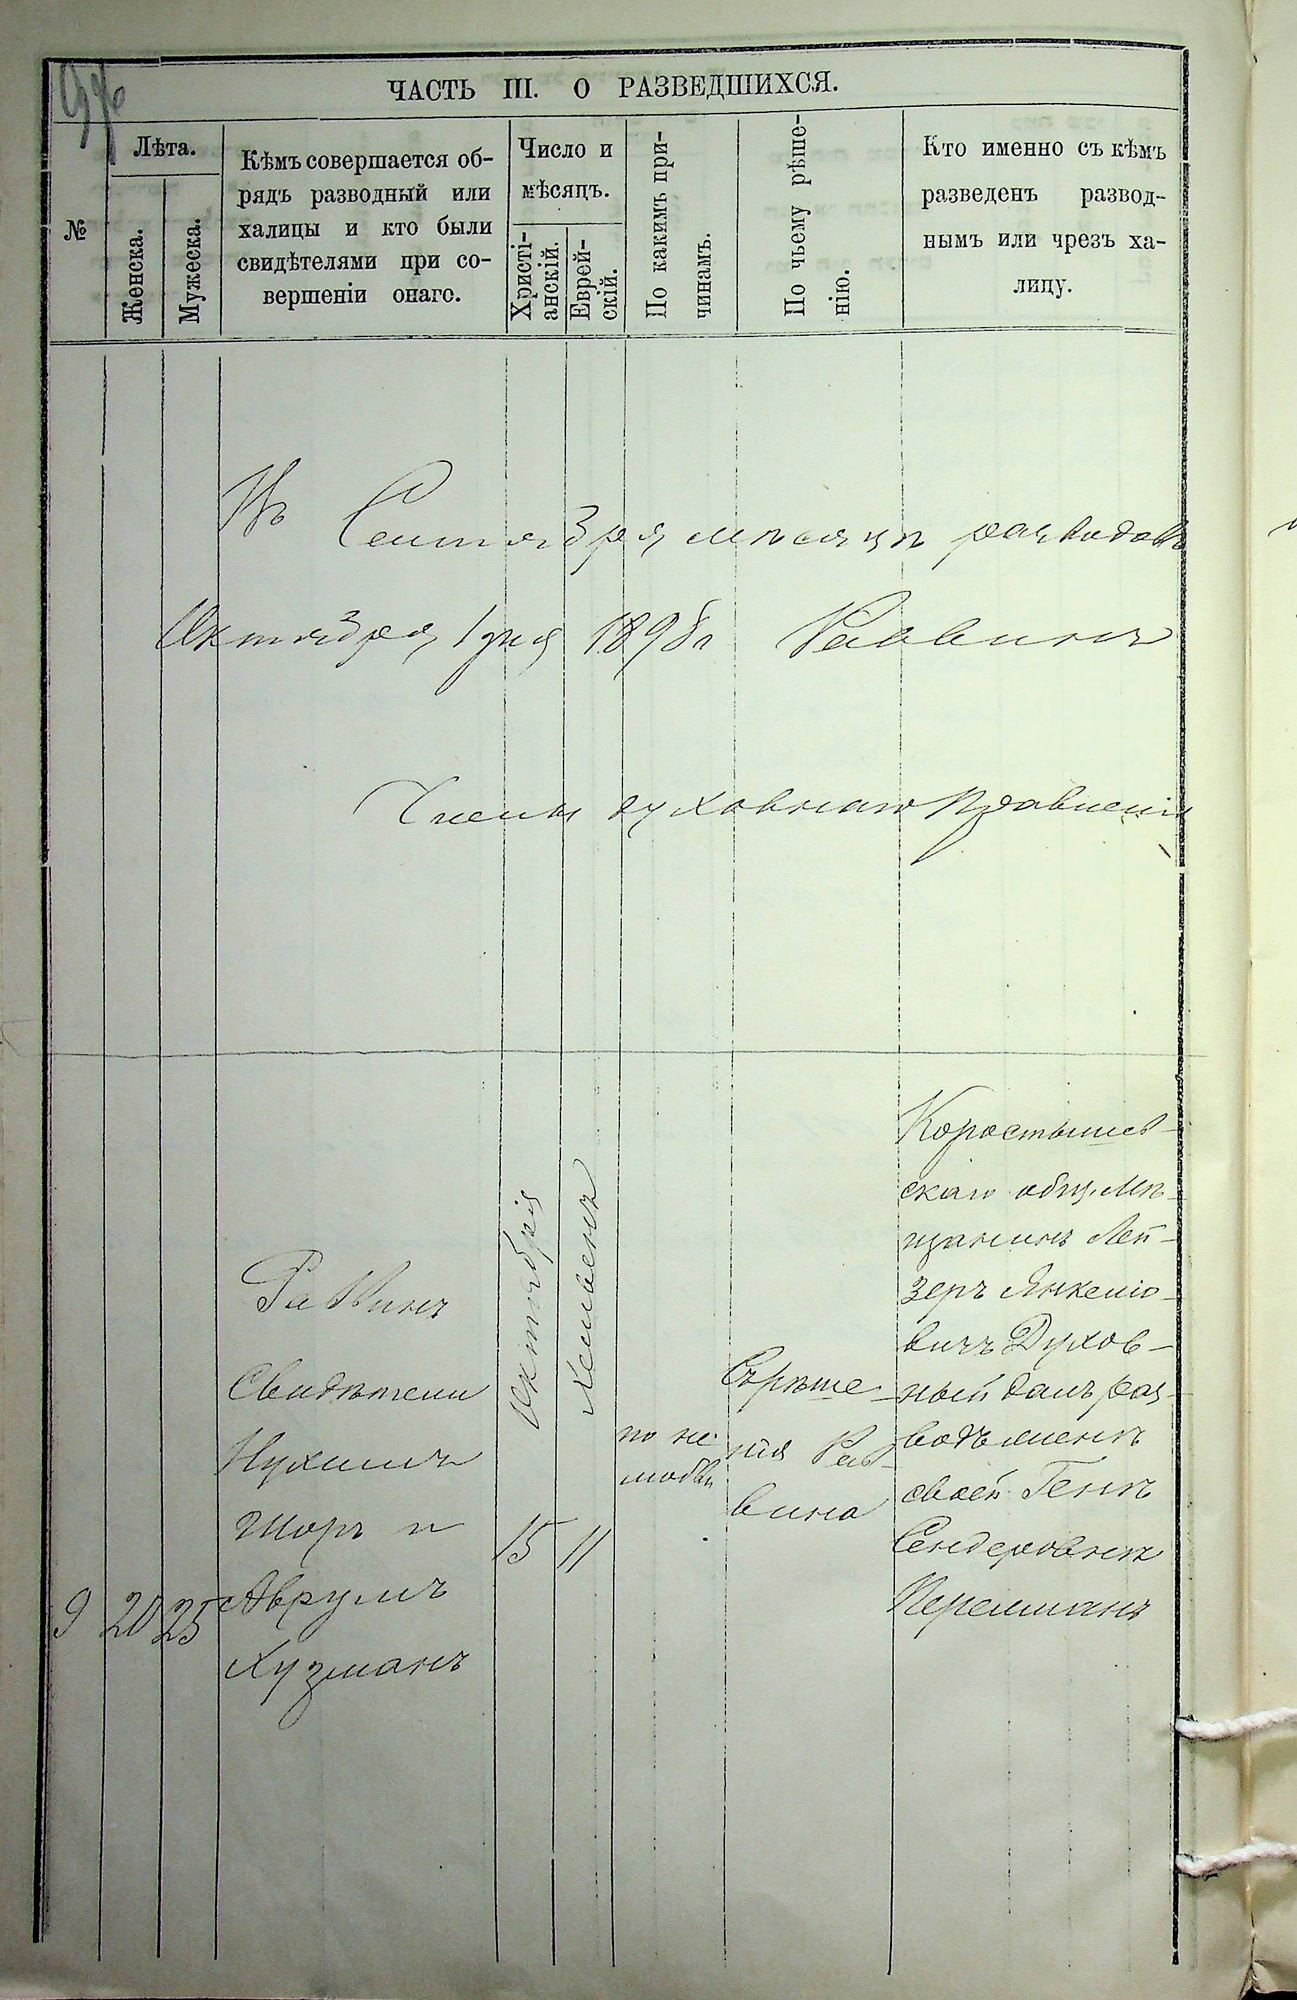 ЧАСТЬ III. О РАЗВЕДШИХСЯ.
№
Лѣта.
Женска.
Мужеска.
Кѣмъ совершается об-
рядъ разводный или
халицы и кто были
свидѣтелями при со-
вершеніи онаго.
Число и
мѣсяцъ.
Христі-
анскій.
Еврей-
скій.
По какимъ при-
чинамъ.
По чьему рѣше-
нію.
Кто именно съ кѣмъ
разведенъ развод-
нымъ или чрезъ ха-
лицу.
Сентября мѣсяцѣ разводовъ
Октября 1 дня 1898 г Раввинъ
Члены духовнаго Правленія
9
20
25
Равинъ
Свидѣтели
Нухимъ
Шоръ и
Аврумъ
Хузманъ
Октября
15
Хешвенъ
11
по не
любви
Съ рѣше-
нія Рав-
вина
Коростышев-
скаго общ. мѣ-
щанинъ Лей-
зеръ Янкелю-
вичъ Духов-
ный далъ раз-
водъ женѣ
своей Генѣ
Сендеровнѣ
Перельманъ